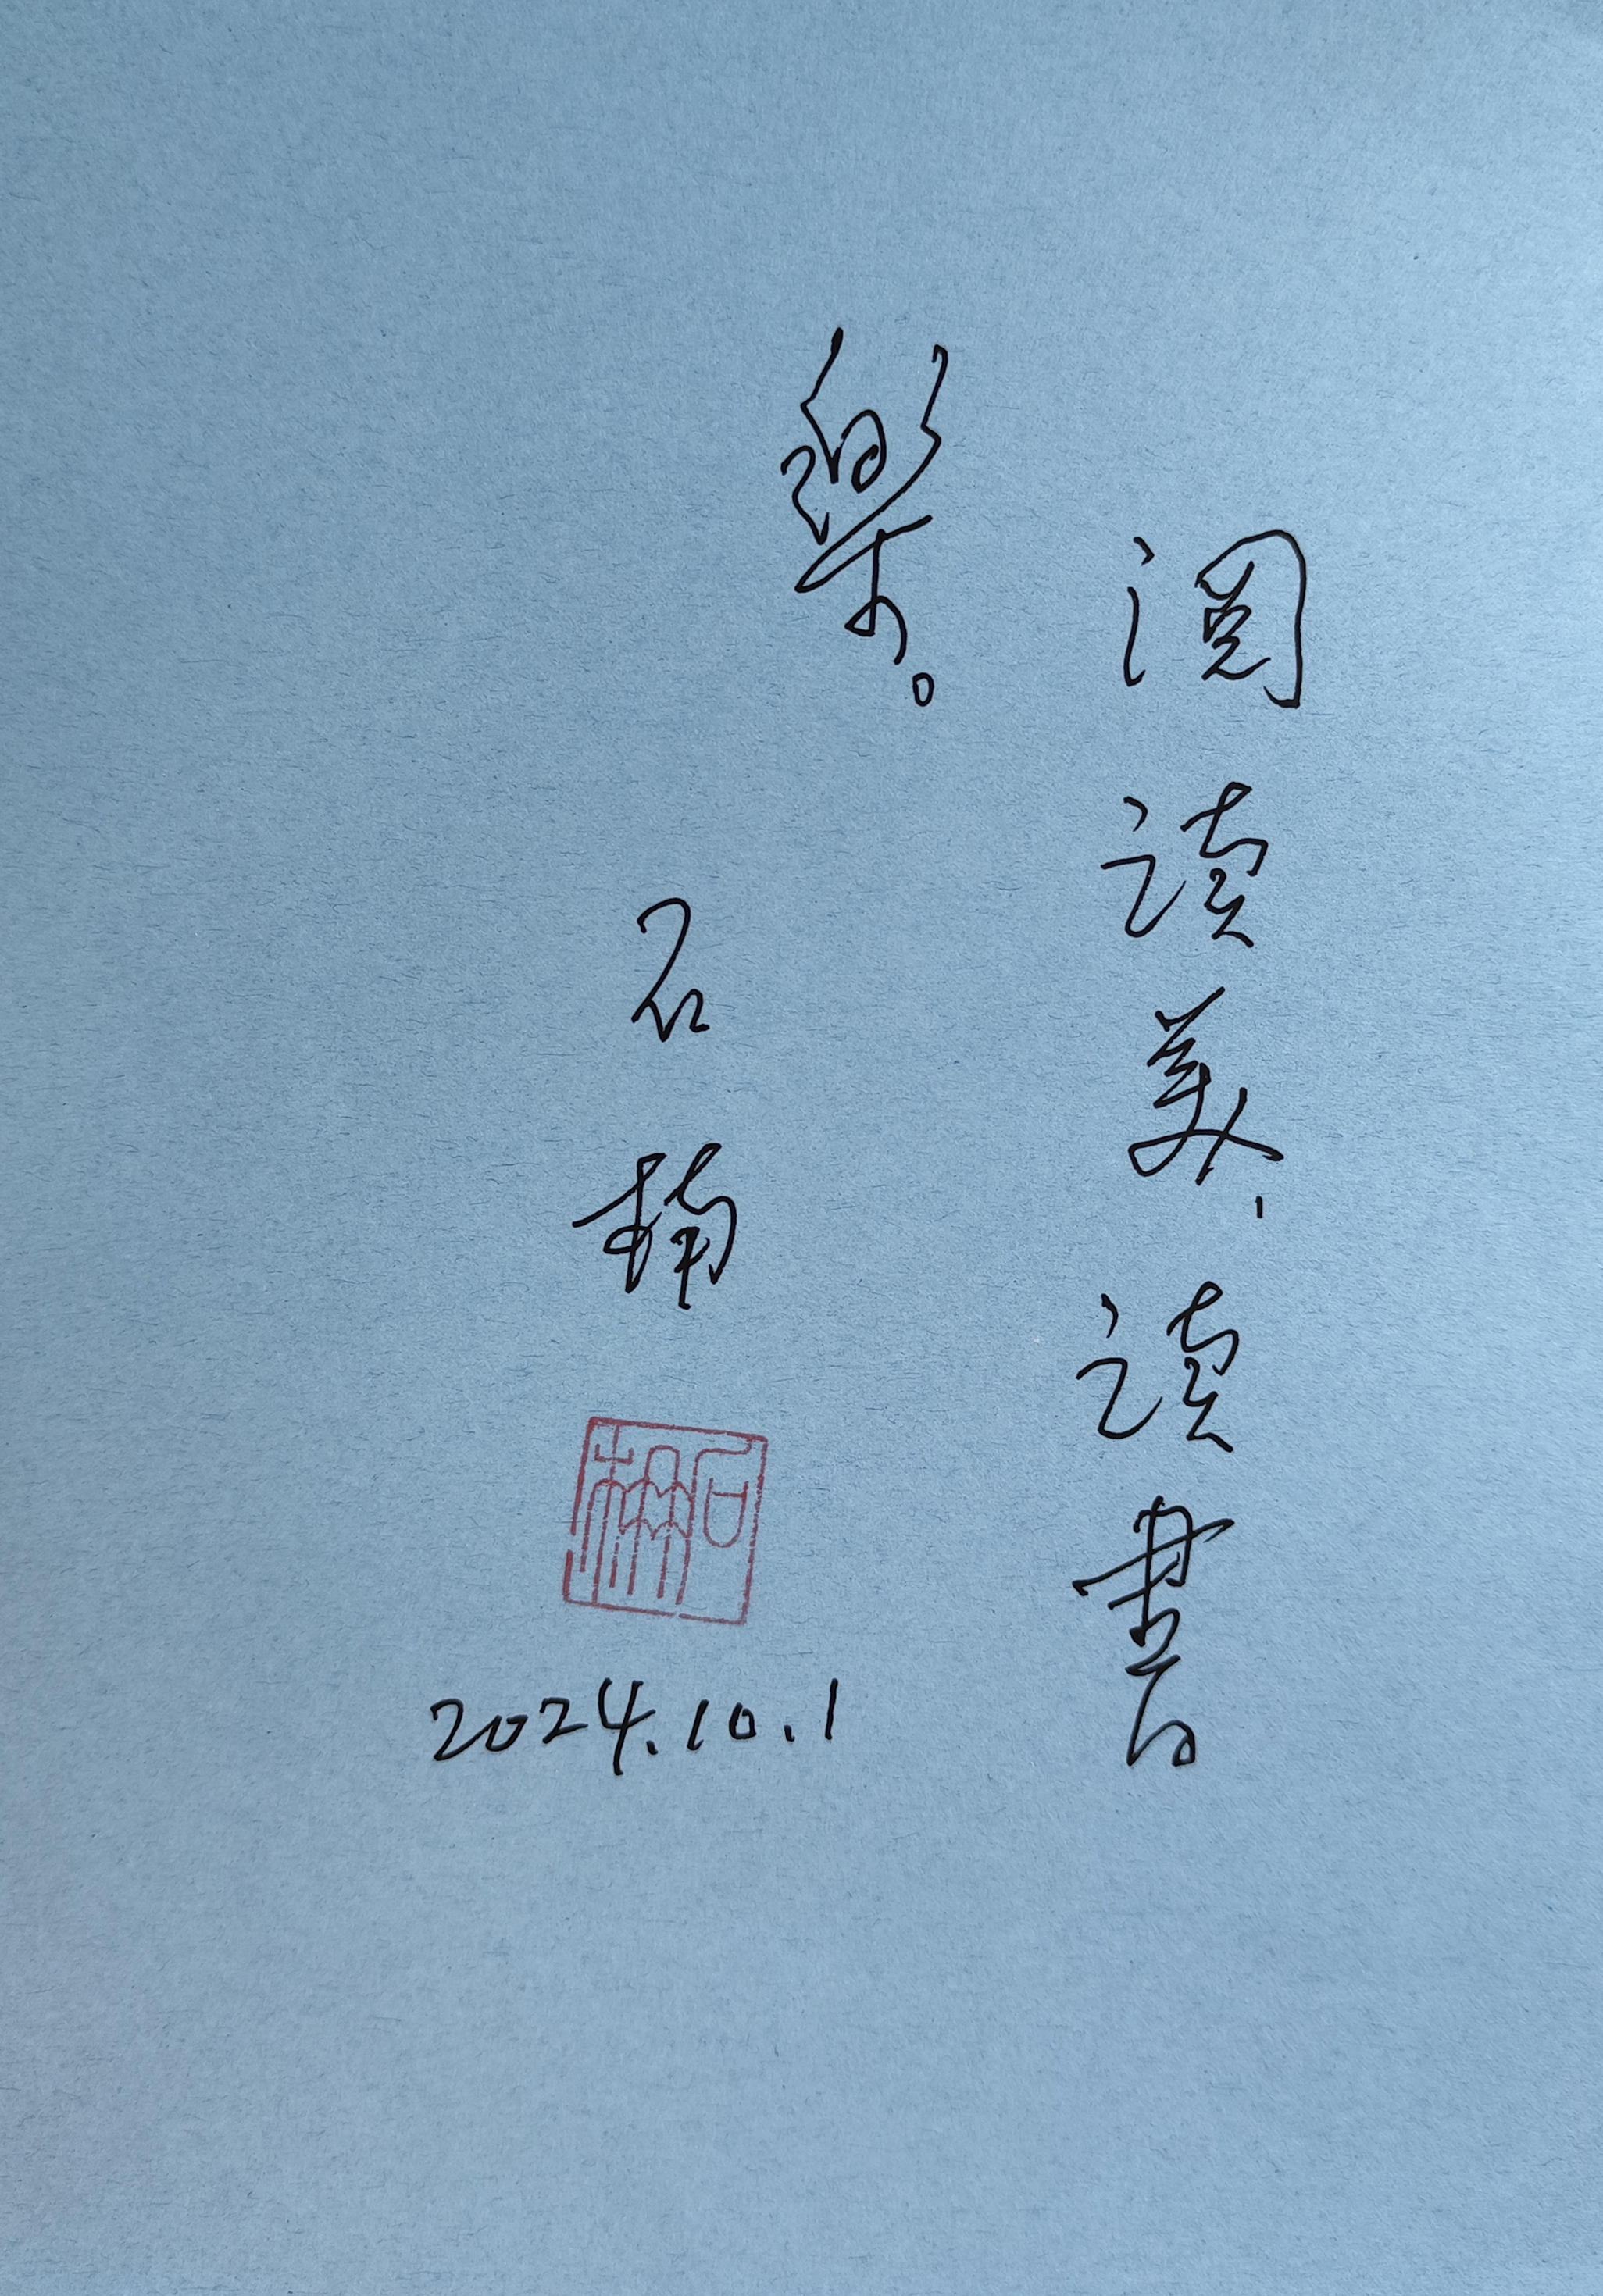 阅读美、读书
樂。
石楠
石楠
2024.10.1